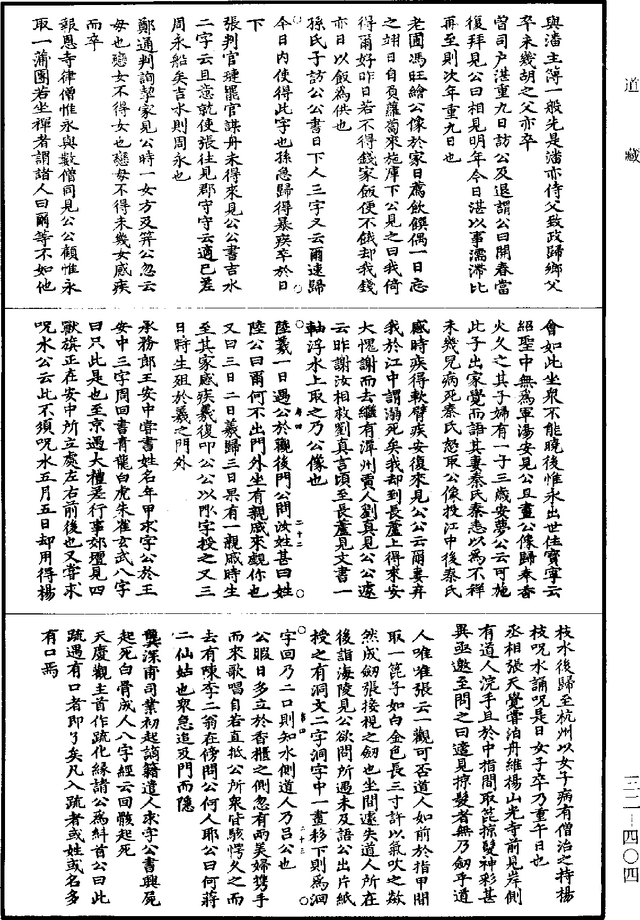 道藏
與潘主簿一般先是潘亦侍父致政歸鄉父
卒未幾胡之父亦卒
曾司户湛重九日訪公及退謂公曰開春當
復拜見公曰相見明年今日湛以事濡滯比
再至則次年重九日也
老圃馮旺繪公像於家日薦飲饌偶一日忘
之翊日自負蘿蔔來施庫下公見之曰我倚
得爾好昨日若不得錢家飯便不餓却我錢
亦日以飯為供也
孫氏子訪公公書曰下人三字又云爾速歸
今日内使得此字也孫急歸得暴疾卒於日
下
張判官璉罷官謀舟未得來見公公書吉水
二字云且意就使張往見郡守守云適已差
周永船矣吉水則周永也
鄭通判詢挈家見公時一女方及笄公忽云
母也戀女不得女也戀母不得未幾女感疾
而卒
報恩寺律僧惟永與數僧同見公公顧惟永
取一蒲團若坐禪者謂諸人曰爾等不如他
會如此坐衆不能曉後惟永出世住寶寧云
紹聖中無為軍湯安見公且畫公像歸奉香
火久之其子婦有一子三歲安夢公云可施
此子出家覺而語其妻秦氏秦恚以為不祥
未幾兒病死秦氏怒取公像投江中後秦氏
感時疾得軟臂疾安復來見公公云爾妻弃
我於江中謂溺死矣我却到長蘆上得來安
大懼謝而去繼有潭州賈人劉真見公公遽
云昨謝汝相救劉真言頃至長蘆見文書一
軸浮水上取之乃公像也
陸羲一日遇公於觀後門公問汝姓甚曰姓
陸公曰爾何不出門外坐有親戚來覷你也
又曰三日二日羲歸三日果有一親戚時生
至其家感疾羲復叩公公以門字授之又三
日時生殂於羲之門外
承務郎王安中甞書姓名年甲求字公於王
安中三字周回書青龍白虎朱雀玄武八字
曰只此是也至京遇大禮差行事郊壇見四
獸旗正在安中所立處左右前後也又甞求
呪水公云此不須呪水五月五日却用得楊
枝水後歸至杭州以女子病有僧治之持楊
枝呪水誦呪是日女子卒乃重午日也
丞相張天覺甞泊舟維楊山光寺前見岸側
有道人浣手且於中指間取箆掠髮神彩甚
異亟邀至問之曰適見掠髮者無乃劒乎道
人唯唯張云一觀可否道人如前於指甲間
取一箆子如白金色長三寸許以氣吹之欻
然成劒張接視之劒也坐間遽失道人所在
後詣海陵見公欲問所遇未及語公出片紙
授之有洞文二字洞字中一畫移下則爲洄
字回乃二口則知水側道人乃吕公也
公暇日多立於香櫃之側忽有兩美婦携手
而來歌唱自若直抵公所衆皆駭愕久之而
去有陳李二翁在傍問公何人耶公曰何蔣
二仙姑也衆急追及門而隱
龔深甫司業初起謫籍遣人求字公書與屍
起死白骨成人八字經云回骸起死
天慶觀主首作疏化緣請公為糾首公曰此
疏遇有口者即了矣凡入疏者或姓或名多
有口焉
三二—四〇四